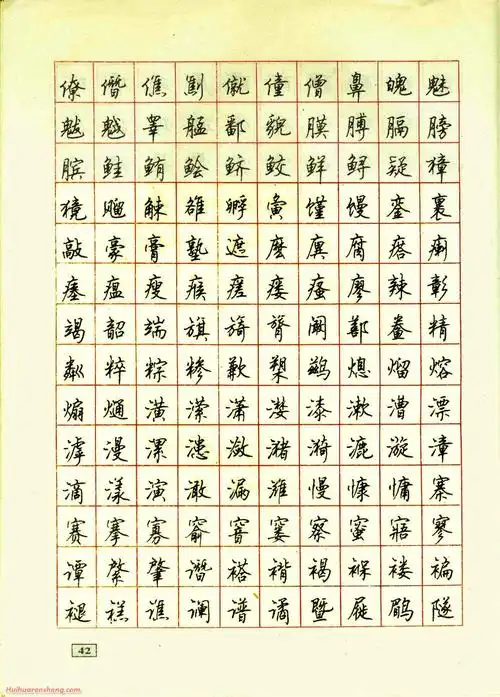 僚 僭 僬 劁 僦 僮 僧 鼻 魄 魅
魃 魆 睾 艋 鄱 貌 膜 膊 膈 膀
膑 鲑 鲔 鲙 鲚 鲛 鲜 鲟 疑 獐
獍 飗 觫 雒 孵 夤 馑 馒 銮 裹
敲 豪 膏 塾 遮 麽 廙 腐 瘩 瘌
瘗 瘟 瘦 瘊 瘥 瘘 瘙 廖 辣 彰
竭 韶 端 旗 旖 膂 阚 鄯 鲞 精
粼 粹 粽 糁 歉 槊 鹚 熄 熘 熔
煽 熥 潢 潆 潇 漤 漆 漱 漕 漂
滹 漫 漯 漶 潋 潴 漪 漉 漩 漳
滴 漾 演 澉 漏 潍 慢 慷 慵 寨
赛 搴 寡 窬 窨 窭 察 蜜 寤 寥
谭 綮 肇 谮 褡 褙 褐 褓 褛 褊
褪 禚 谯 谰 谱 谲 暨 屣 鹛 隧
42
Huihuarenshang.com